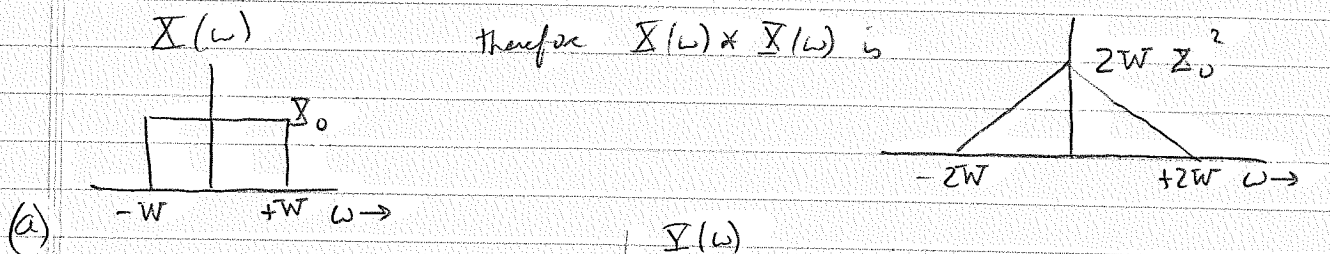 X(ω) therefore X(ω) * X(ω) is
2W X₀²
X₀
-W +W ω→
-2W +2W ω→
(a)
Y(ω)